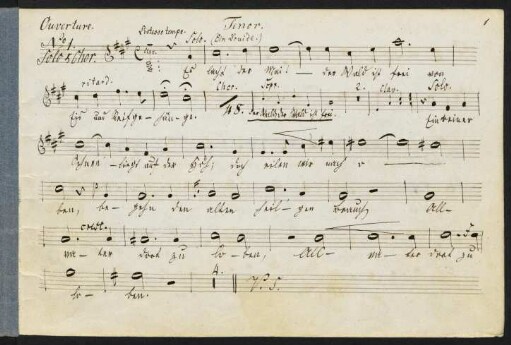 Ouverture. Tenor. 1
No 1. Solo. (Ein Druide.)
Solo & Chor. Es lacht der Mai! – der Wald ist frei von
ritard. Chor. Sopr. 2. Clar. Solo.
Eis und Reifge–hän–ge. 48. Der Wald, der Wald ist frei. Ein reiner
auf der Höh; doch eilen wir nach
ben, be–gehn den alten heil–gen Brauch, All–
va–ter dort zu lo–ben, All–va–ter dort zu
4.
lo–ben. V. S.